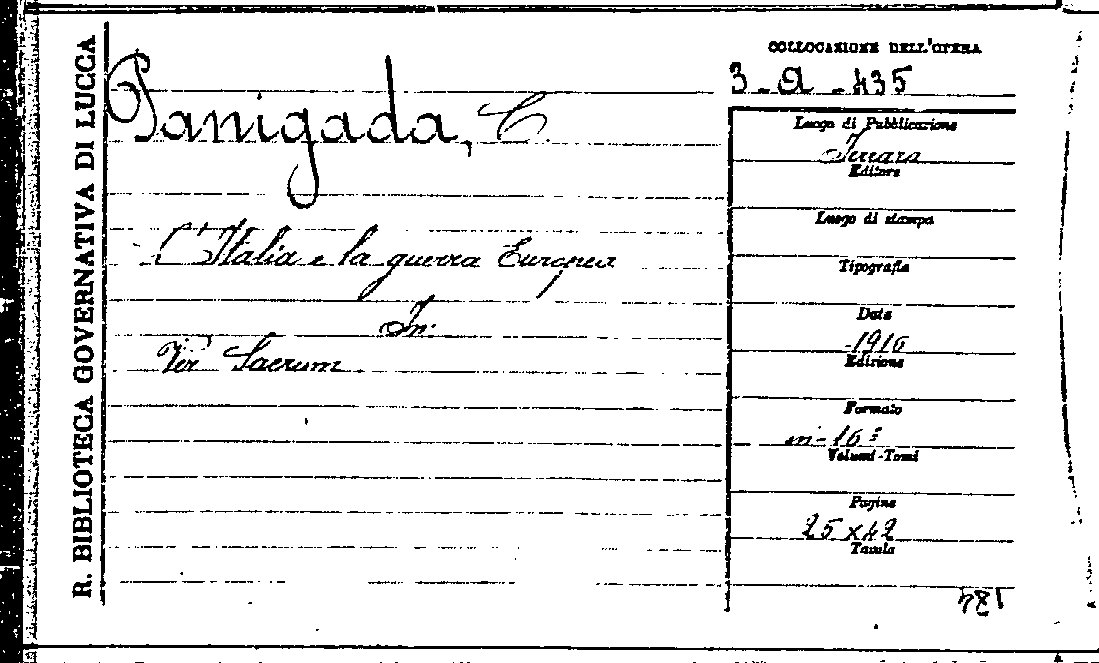 R. BIBLIOTECA GOVERNATIVA DI LUCCA
COLLOCAZIONE DELL'OPERA
3-A-435
Panigada, C.
Luogo di Pubblicazione
Ferrara
Editore
Luogo di stampa
L'Italia e la guerra Europea
Tipografia
In:
Data
1916
Ver Sacrum
Edizione
Formato
in-16º
Volumi-Tomi
Pagine
25x42
Tavole